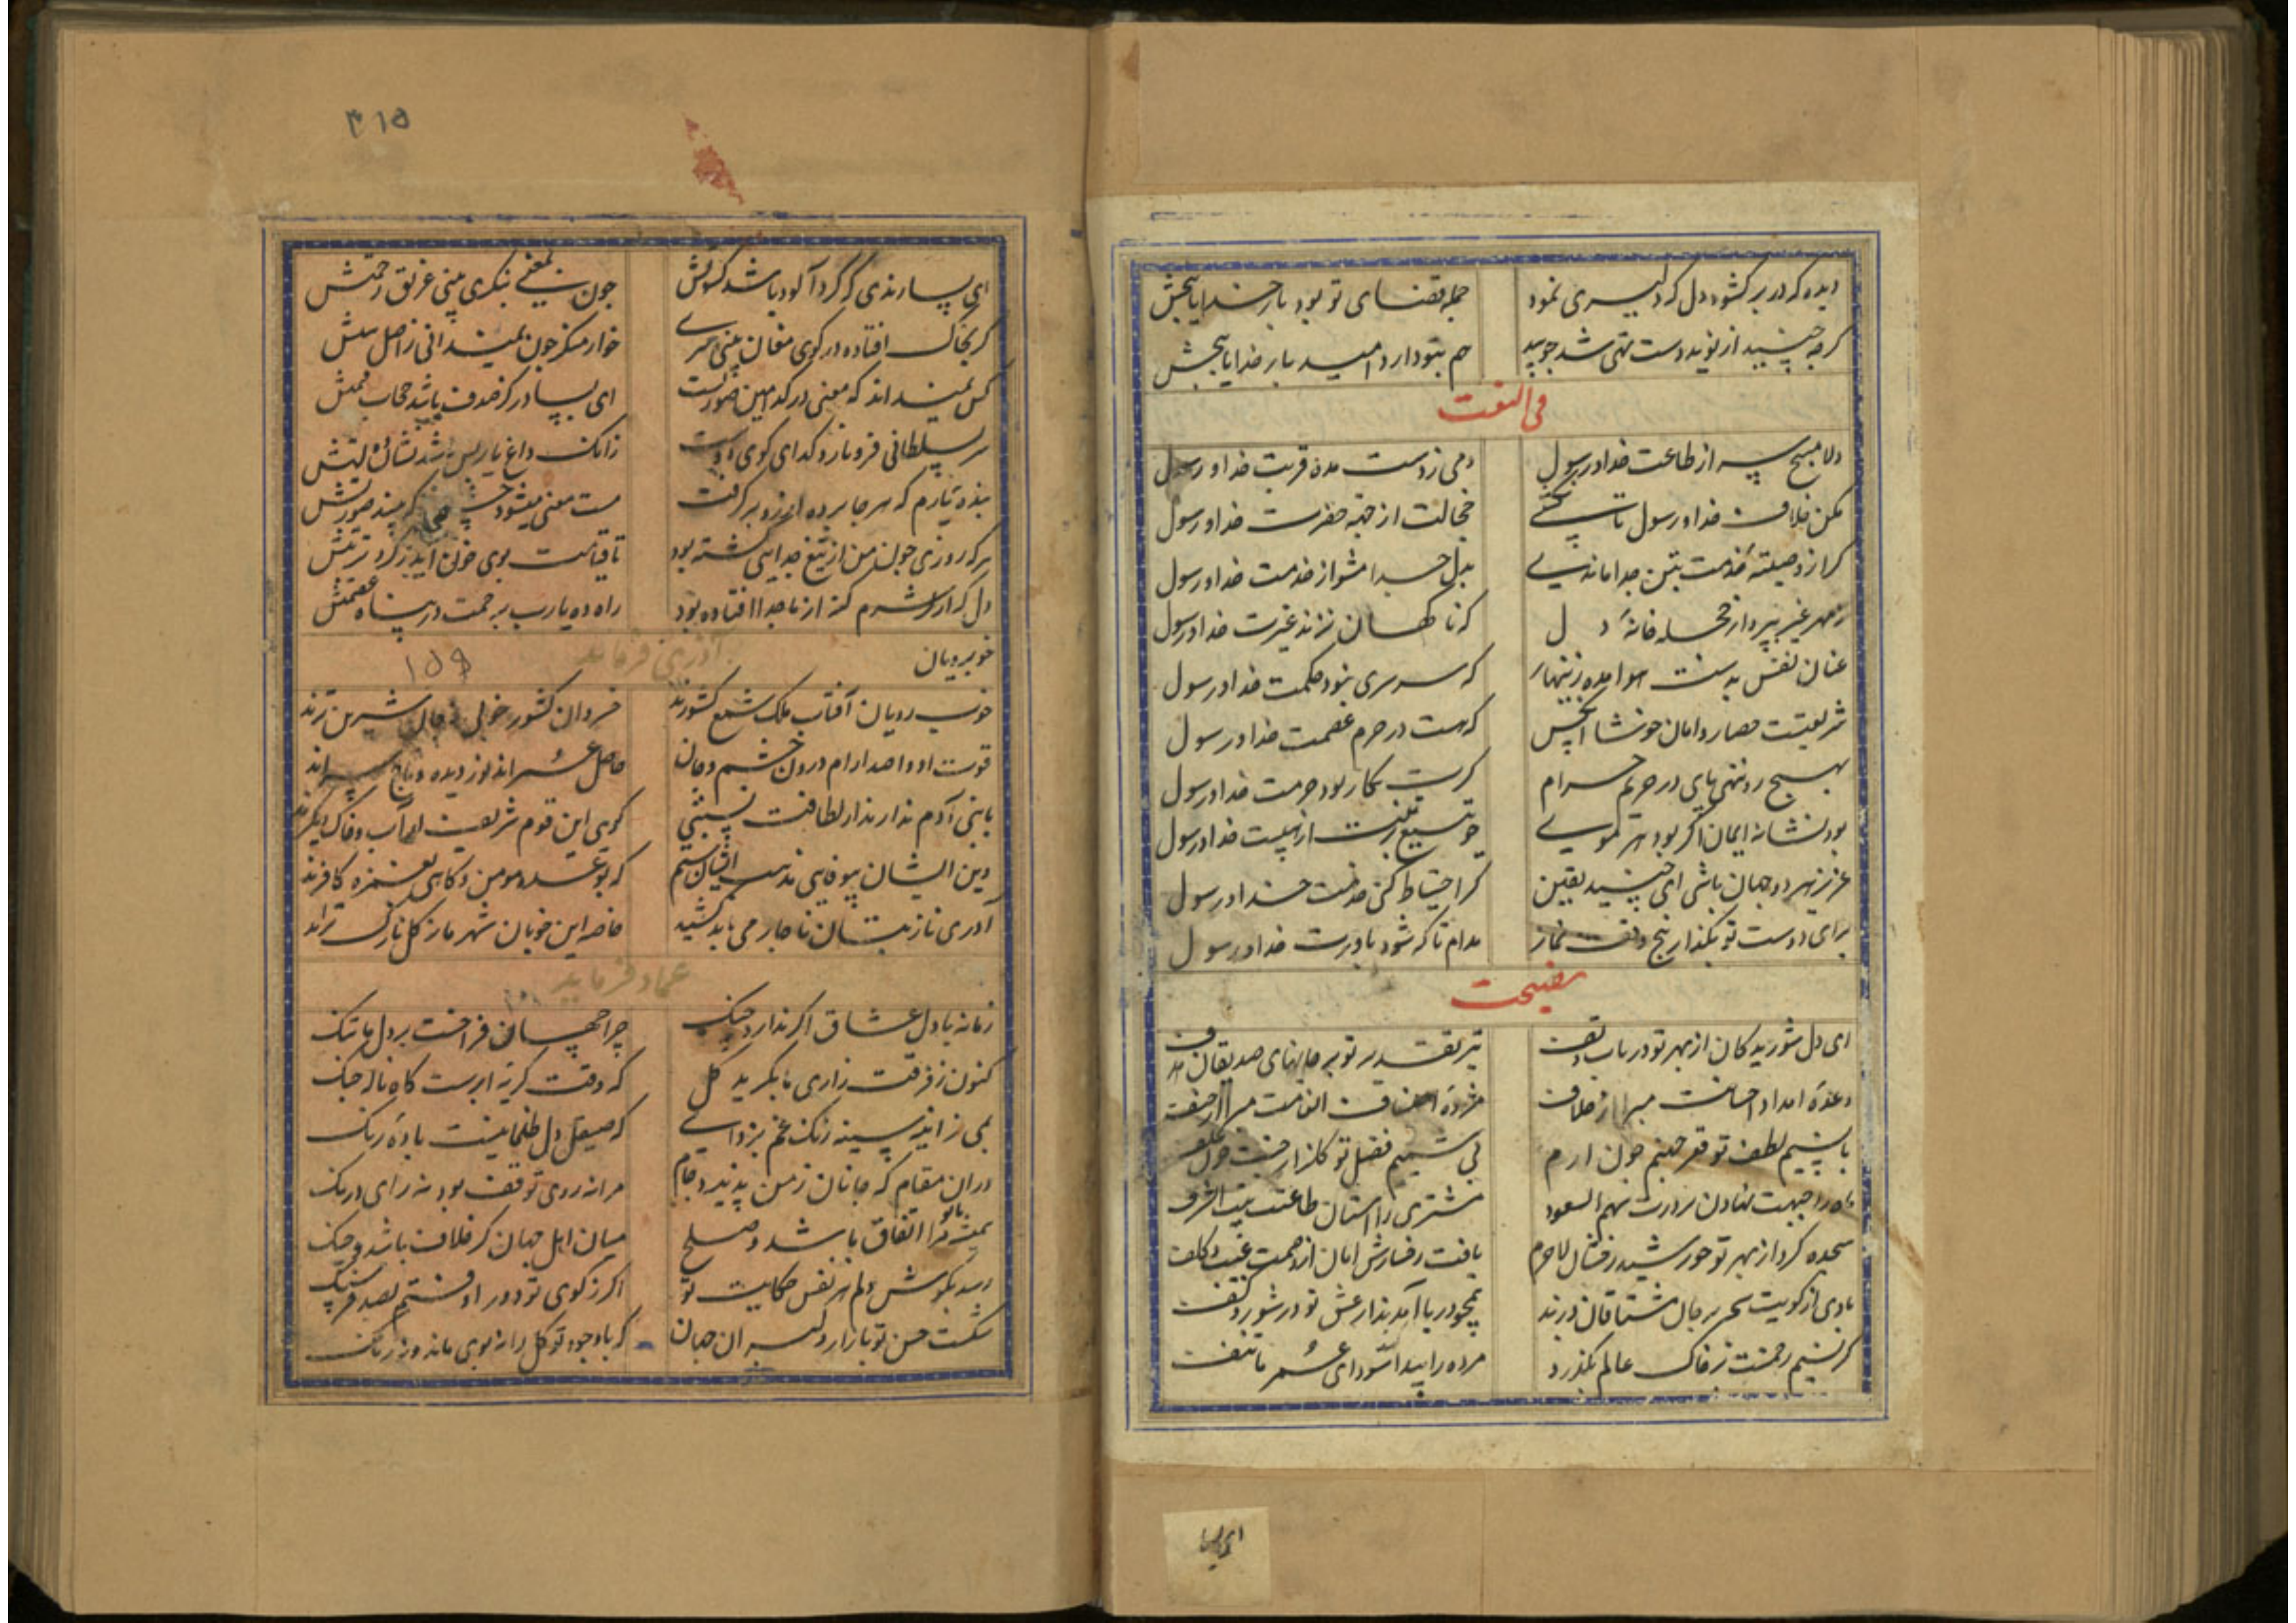 دیده که در بر کشود دل که دلیری نمود
جمله بقضای تو بود بار خدایا ببخش
کرچه جنید از نوید دست تهی شد جو بید
هم بتو دارد امید بار خدایا ببخش
فی النعت
دلا مپیچ سر از طاعت خدا و رسول
دمی ز دست مده قربت خدا و رسول
مکن خلاف خدا و رسول تا نکشی
خجالت از جهة حضرت خدا و رسول
بدل جدا مشو از خدمت خدا و رسول
ز مهر غیر بپرداز خانهٔ دل
که ناکهان نزند غیرت خدا و رسول
عنان نفس بدست هوا مده زنهار
که سرسری نبود حکمت خدا و رسول
شریعتست حصار و امان خوشا آنکس
که هست در حرم عصمت خدا و رسول
بهیچ رو ننهی پای در حریم حرام
کرت بکار بود حرمت خدا و رسول
بود نشانه ایمان اکر بود هر موی
جو تیغ بر تنت از هیبت خدا و رسول
عزیز هر دو جهان باشی ای جنید یقین
کر احتیاط کنی خدمت خدا و رسول
برای دوست تو بکذار پنج وقت نماز
مدام تا که شود یاورت خدا و رسول
نصیحت
ای دل شوریدکان از بهر تو در تاب و تف
تیر تقدیر تو بر جانهای صدیقان هدف
وعدهٔ امداد احسانت مبرا از خلاف
با نسیم لطف تو قعر جهنم جون ارم
بی نسیم فضل تو کلزار جنت جون علف
ماه را جبهت نهادن بر درت سهم السعود
مشتری را آستان طاعتت بیت الشرف
سجده کرد از بهر تو خورشید رفتان لاجرم
یافت رفتارش امان از زحمت عیب و کلف
بادی از کویت سحر بر جان مشتاقان وزید
همجو دریا آمدند از عشق تو در شور و کف
کر نسیم رحمتت بر خاک عالم بکذرد
مرده را پیدا شود ای عمر ما تلف
۴۱۵
ای بسا رندی که کرد آلود باشد کسوتش
جون بمعنی بنکری بینی غریق رحمتش
کر بخاک افتاده در کوی مغان بینی سری
خوار منکر جون نمیدانی ز اصل نسبتش
کس نمیداند که معنی در کدامین صورتست
ای بسا در کز صدف باشد حجاب قیمتش
سر بسلطانی فرو نارد کدای کوی دوست
زانک داغ یار بس باشد نشان دولتش
بندهٔ یارم که هر جا پرده از رو برکرفت
مست معنی میشود جشمی که بیند صورتش
هر که روزی جون من از تیغ جدایی کشته بود
تا قیامت بوی خون آید ز کرد تربتش
دل که از شرم کنه از ما جدا افتاده بود
راه ده یارب برحمت در پناه عصمتش
خوبرویان
آذری فرماید
۱۵۹
خوب رویان آفتاب ملک شمع کشورند
خسروان کشور خوبی ز جان شیرین ترند
قوت او واحد آرام درون جشم و جان
حاصل عمراند نور دیده و تاج سراند
با بنی آدم ندارند از لطافت نسبتی
کویی این قوم شریف از آب و خاک دیکرند
دین ایشان بیوفایی مذهب ایشان ستم
که بوعده مومن و کاهی بغمزه کافرند
آذری ناز بتان ناجار می باید کشید
خاصه این خوبان شهر ما ز کل نازکتراند
عماد فرماید
زمانه با دل عشاق اکر ندارد جنک
جرا جهانی فراخست بر دل ما تنک
کنون ز فرقت زاری ما بکرید کل
که وقت کریه ابرست کاه ناله جنک
می زاینه سینه زنک غم بزدای
که صیقل دل ظلمانیست باده رنک
دران مقام که جانان ز من پذیرد جام
مرا نه روی توقف بود نه رای درنک
همیشه با تو مرا اتفاق باشد و صلح
میان اهل جهان کر خلاف باشد و جنک
رسد بکوش دلم هر نفس حکایت تو
اکر ز کوی تو دور اوفتم بصد فرسنک
شکست حسن تو بازار دلبران جهان
که با وجود تو کل را نه بوی ماند و نه رنک